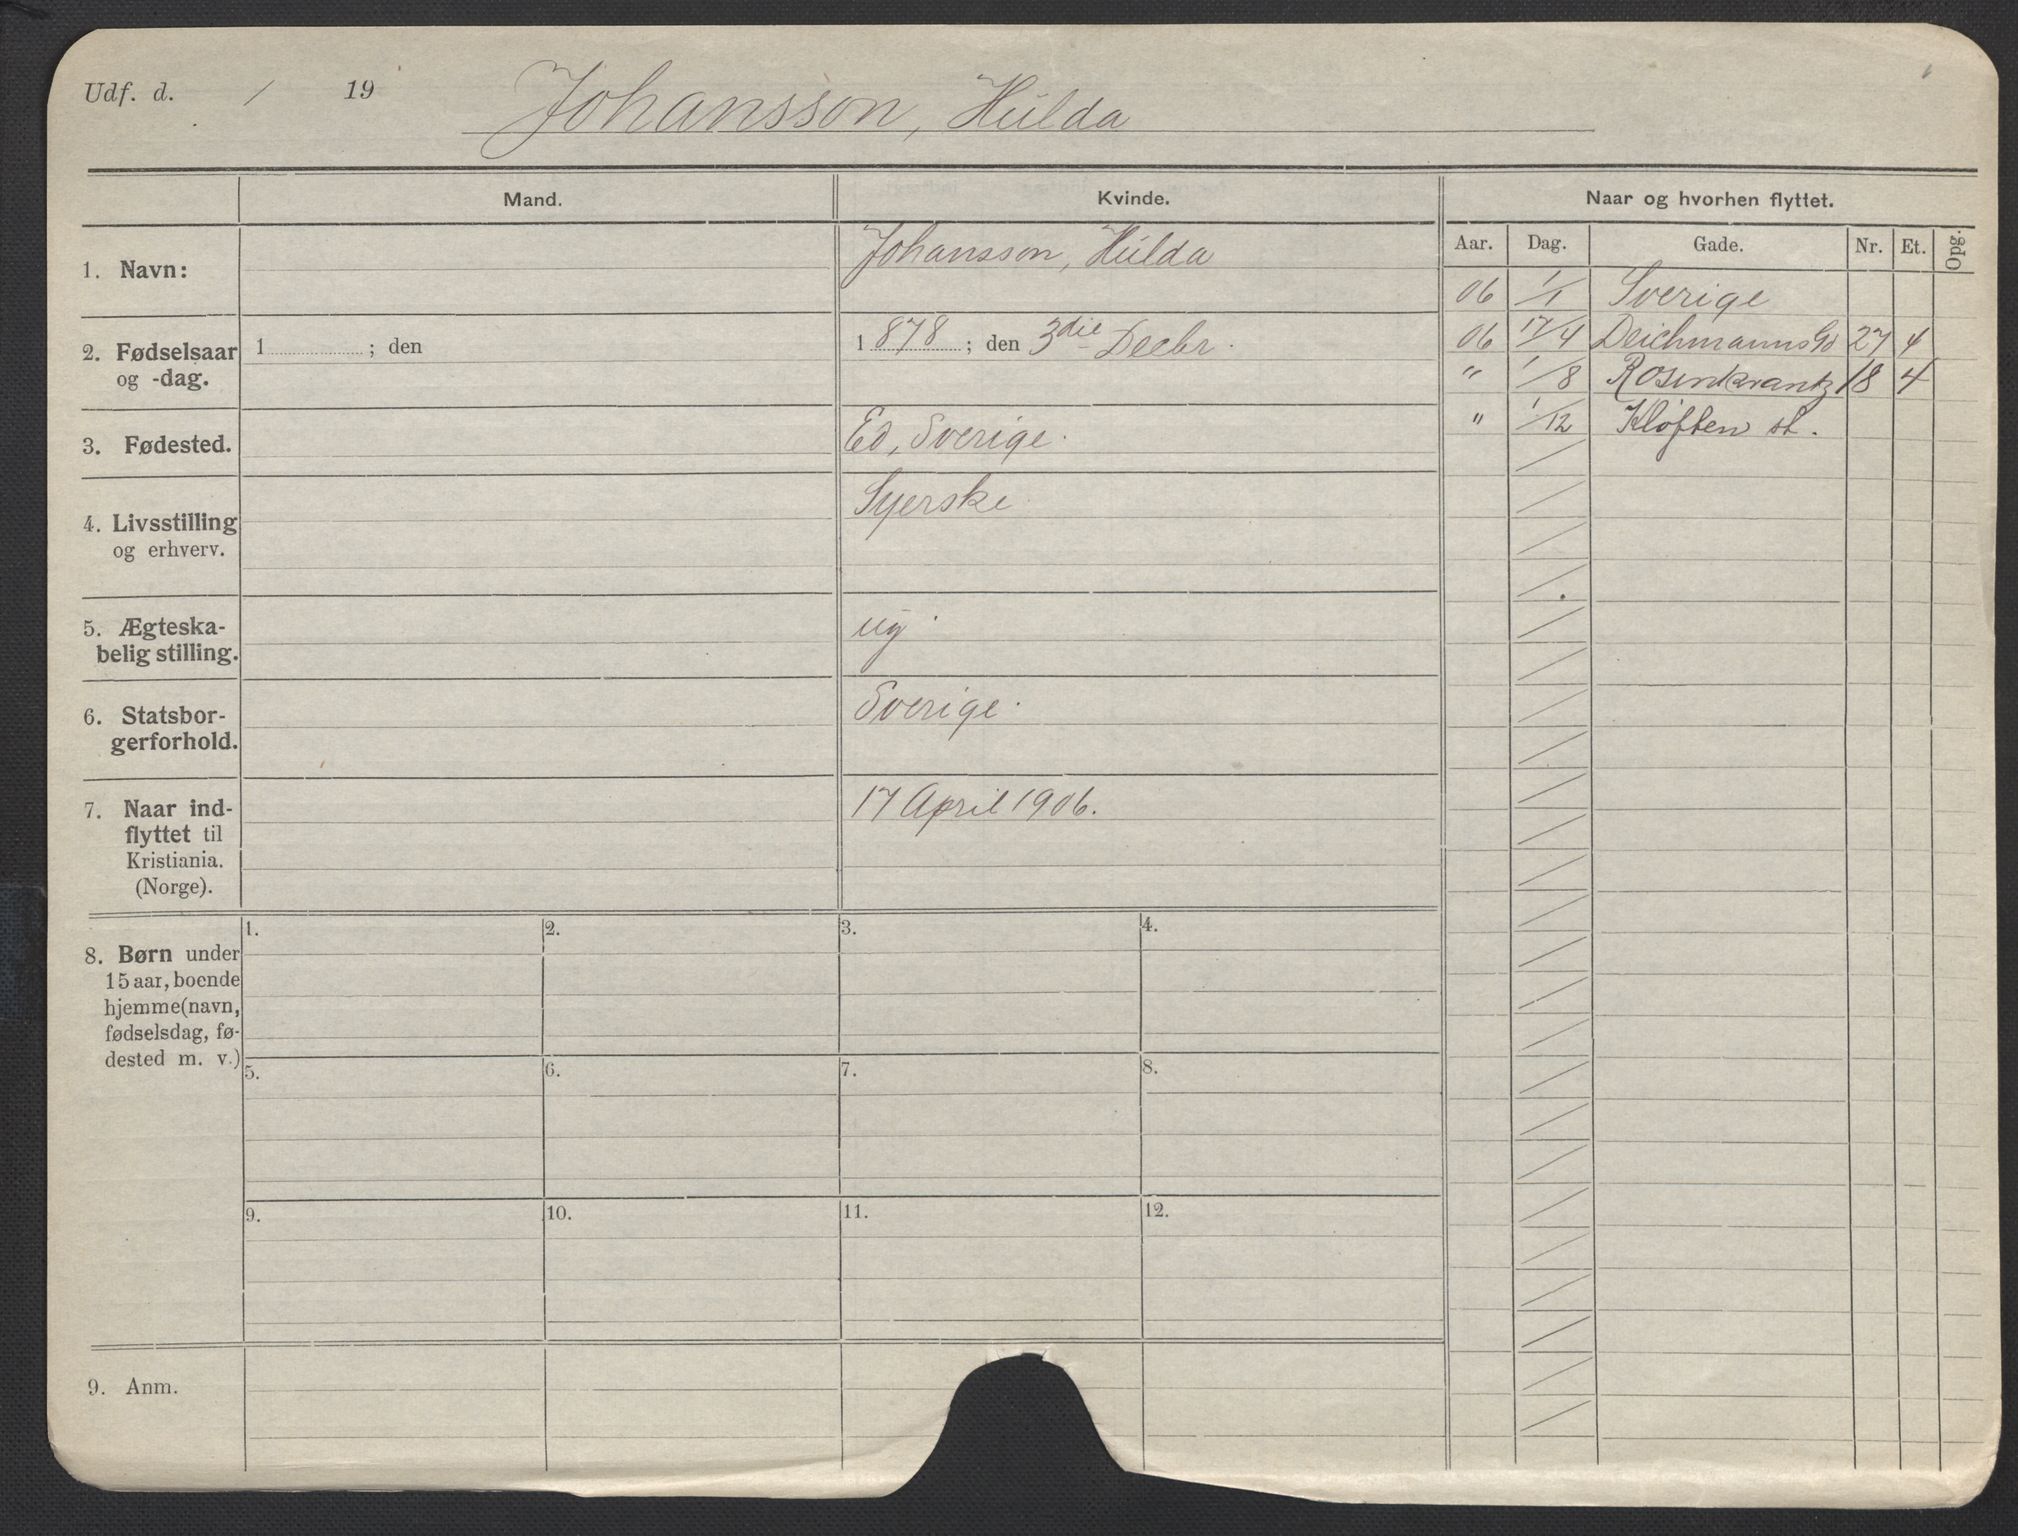 Udf. d. / 19
Johansson, Hulda
Mand. Kvinde. Naar og hvorhen flyttet.
Aar. Dag. Gade. Nr. Et. Opg.
1. Navn: Johansson, Hulda
06 1/1 Sverige
2. Fødselsaar og -dag. 1 ; den 1 878 ; den 3die Decbr.
06 17/4 Deichmanns Gd 27 4
" 1/8 Rosenkrantz 18 4
3. Fødested. Ed, Sverige.
" 1/12 Kløften st.
4. Livsstilling og erhverv. Syerske
5. Ægteska-
belig stilling. ug.
6. Statsbor-
gerforhold. Sverige.
7. Naar ind-
flyttet til
Kristiania.
(Norge). 17 April 1906.
8. Børn under
15 aar, boende
hjemme (navn,
fødselsdag, fø-
dested m. v.)
1. 2. 3. 4.
5. 6. 7. 8.
9. 10. 11. 12.
9. Anm.